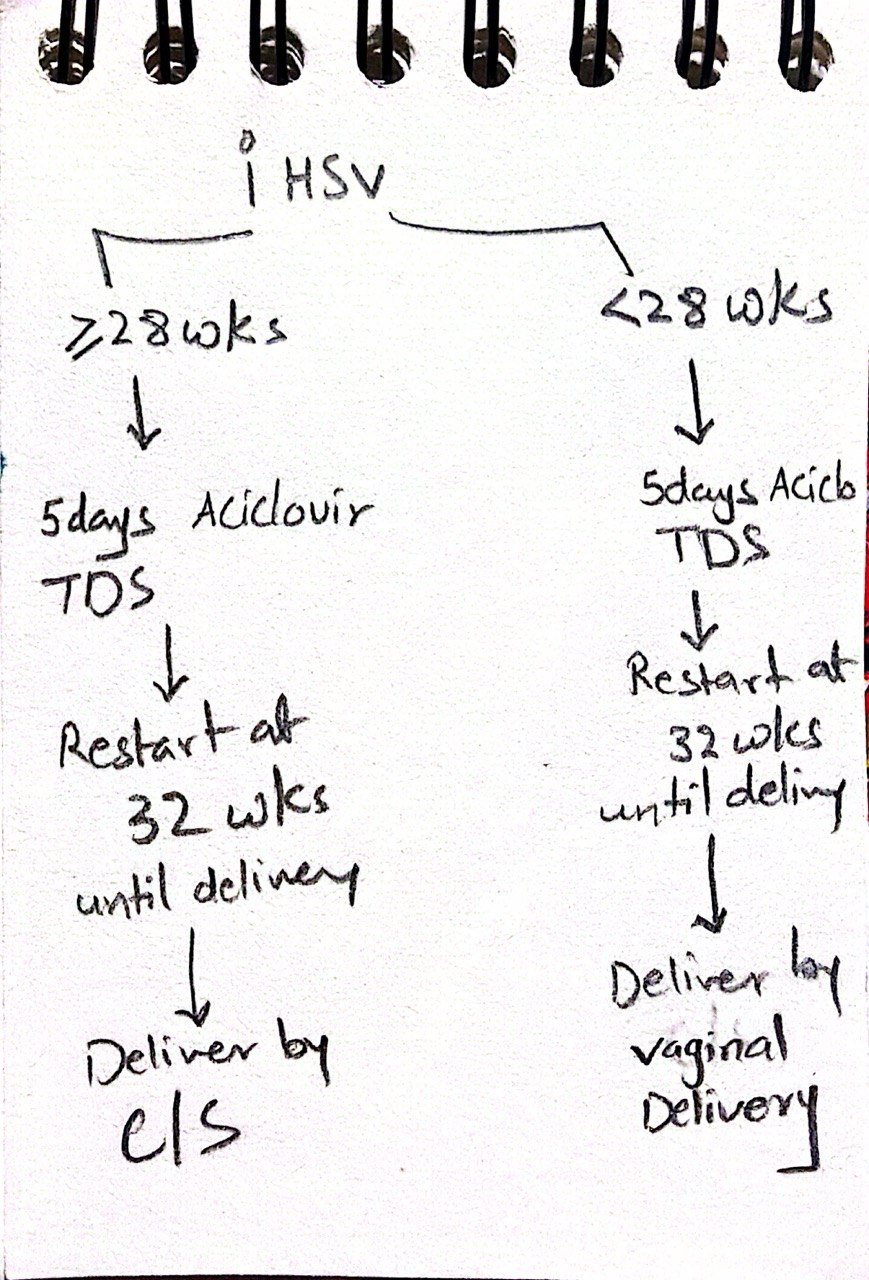 1° HSV
≥28 wks
<28 wks
5days Aciclovir
TDS
Restart at
32 wks
until delivery
Deliver by
C/S
5days Aciclo
TDS
Restart at
32 wks
until delivry
Deliver by
vaginal
Delivery